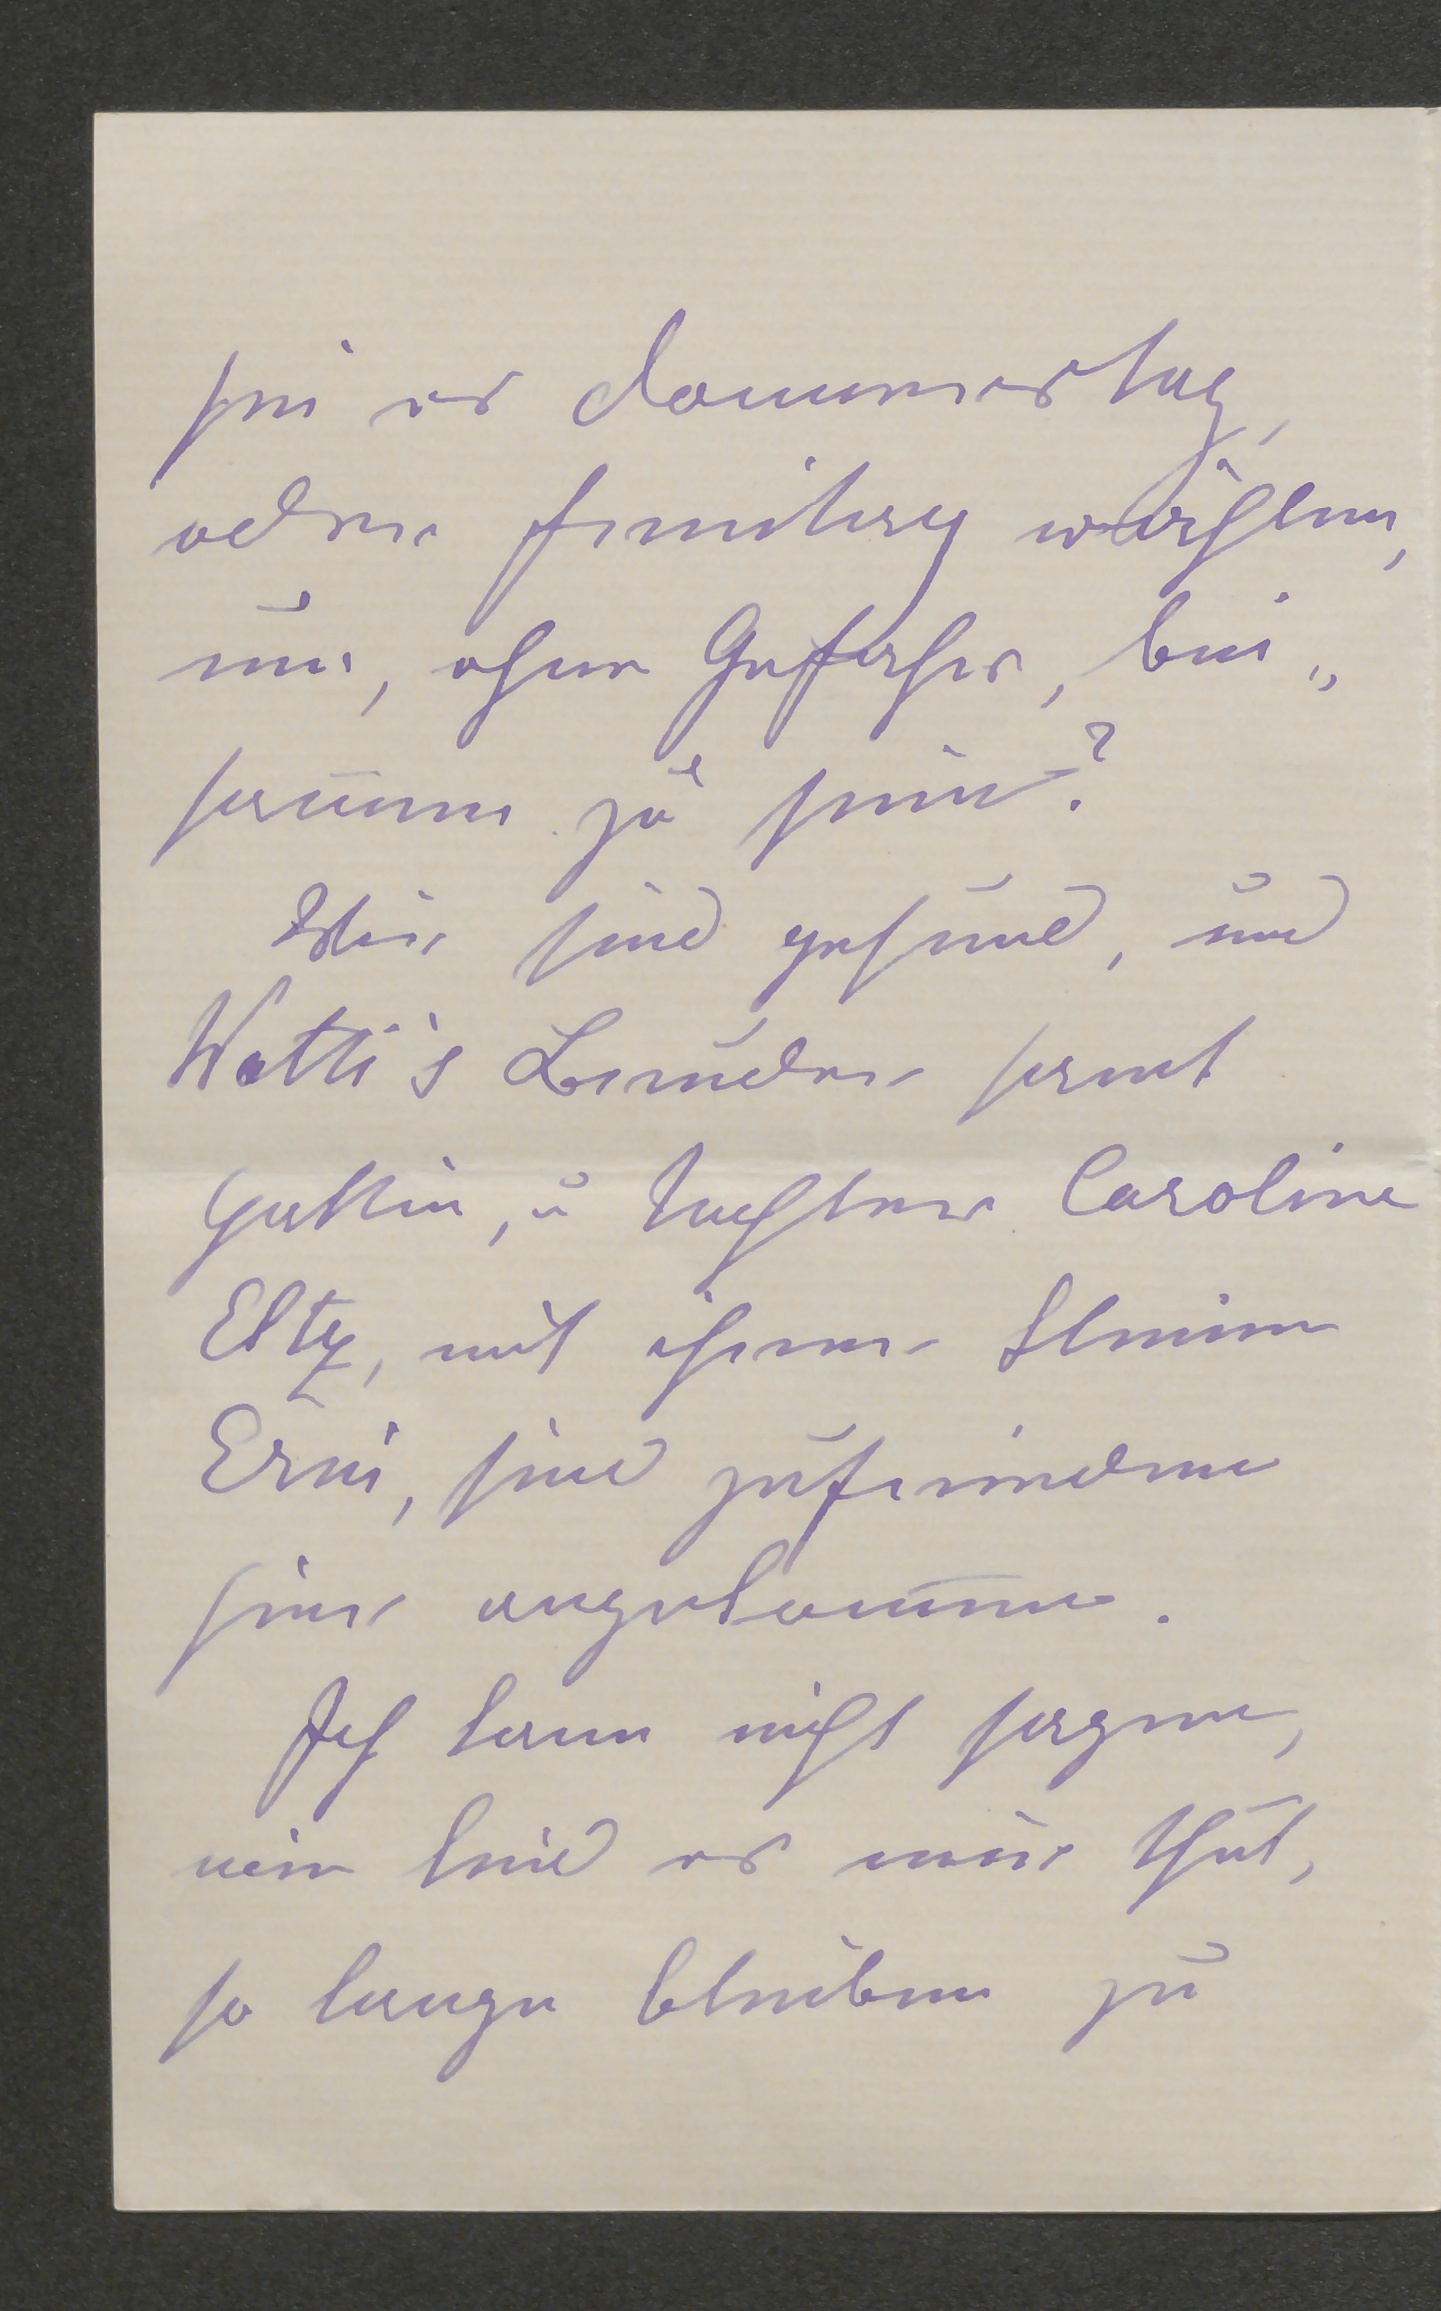 sei es Donnerstag,
oder Freitag wählen,
um, ohne Gefahr, bei„
sam̅en zu sein?
Wir sind gesund, und
Watti's Bruder samt
Gattin, u Tochter Caroline
Eltz, mit ihrem kleinen
Erni, sind zufrieden
hier angekom̅en.
Ich kann nicht sagen,
wie leid es mir thut,
so lange bleiben zu